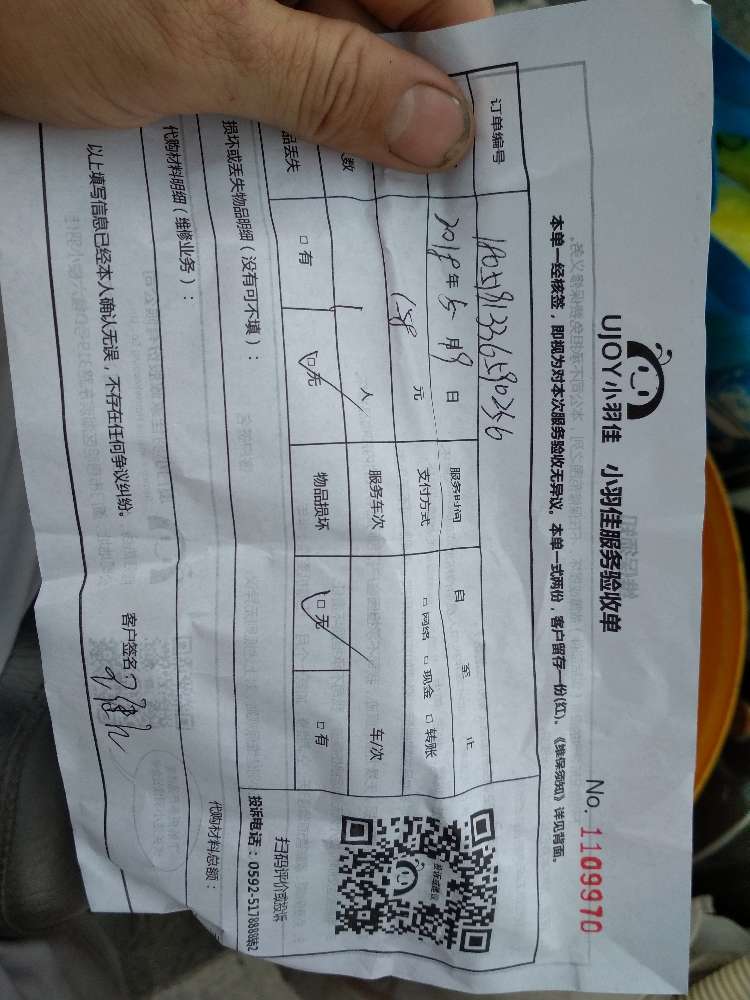 UJOY小羽佳 小羽佳服务验收单
No. 1109970
本单一经核签，即视为对本次服务验收无异议。本单一式两份，客户留存一份(红)。《维保须知》详见背面。
订单编号
2018年5月9日 服务时间 自 至 止
158 元 支付方式 □网络 □现金 □转账
数 1 人 服务车次 车/次
品丢失 □有 □无 物品损坏 □无 □有
扫码评价或投诉
投诉电话：0592-5178888转2
损坏或丢失物品明细（没有可不填）：
代购材料明细（维修业务）： 代购材料总额：
以上填写信息已经本人确认无误，不存在任何争议纠纷。 客户签名：